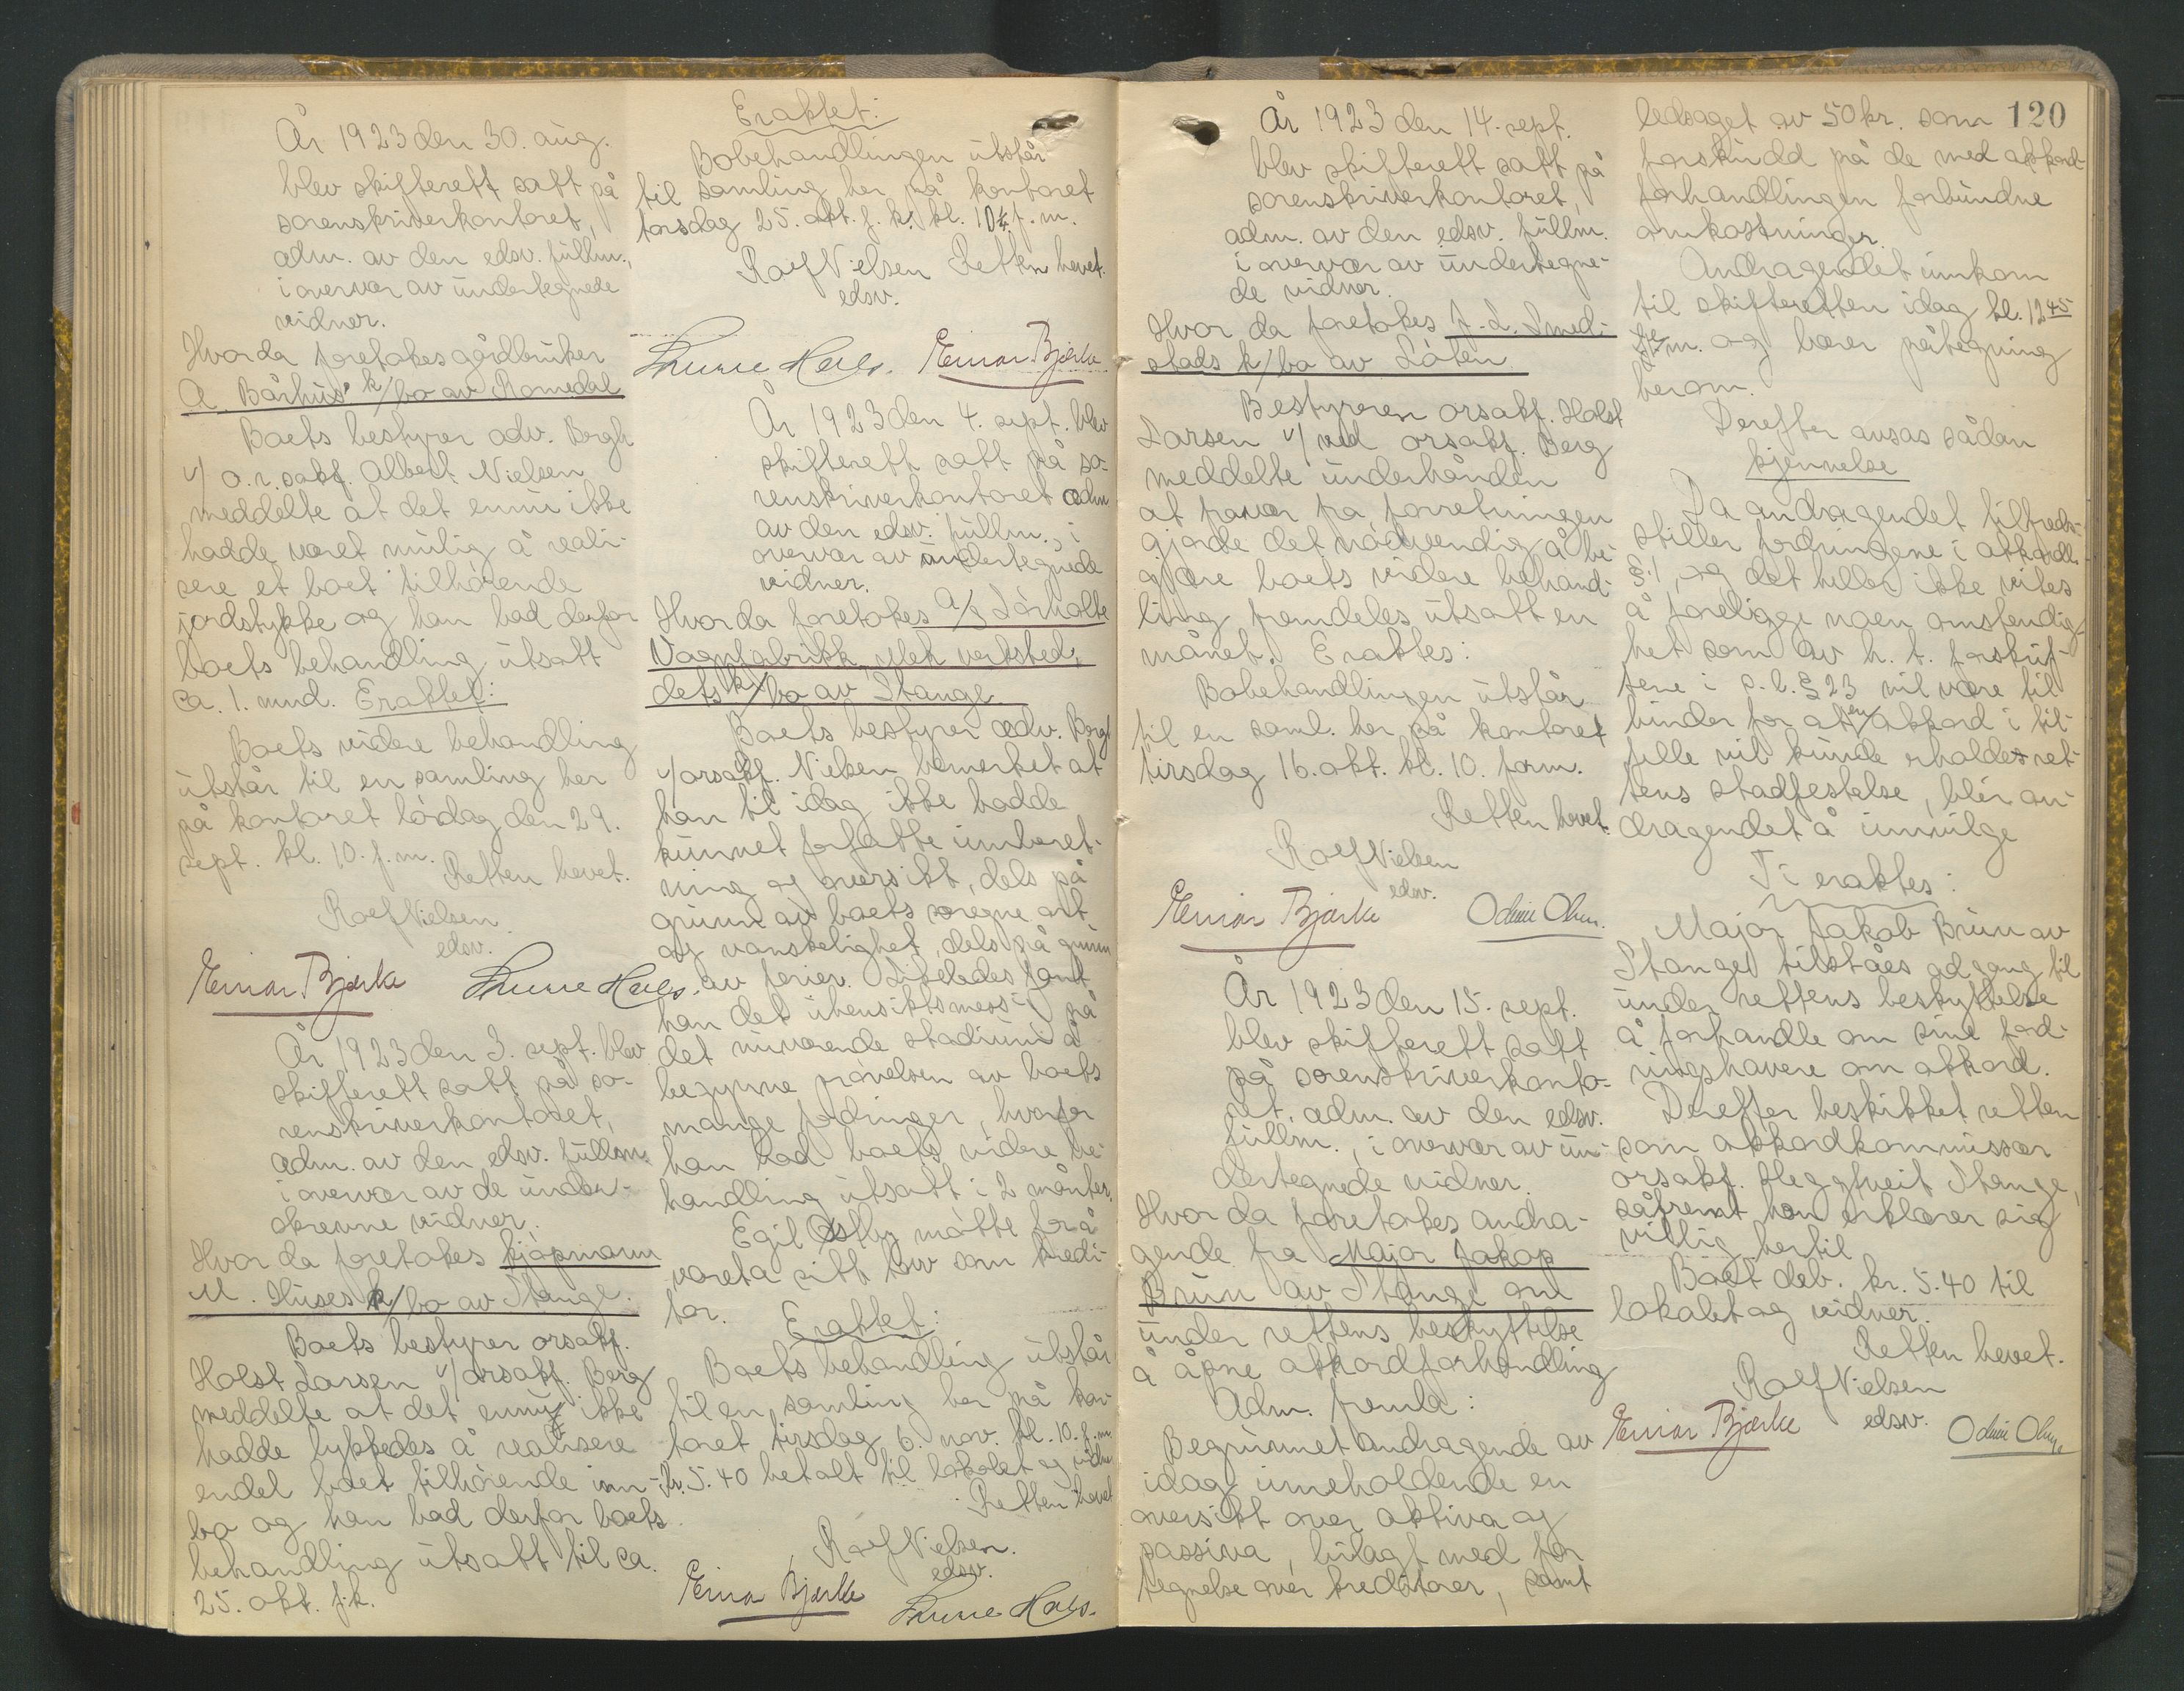 År 1923 den 30. aug.
blev skifterett satt på
sorenskriverkontoret,
adm. av den edsv. fullm.,
i overvær av undertegnede
vidner.
Hvor da foretokes gårdbruker
A. Bårhus' k/bo av Romedal
Boets bestyrer adv. Bergh
v/ o.r.sakf. Albert Nielsen
meddelte at det ennu ikke
hadde været mulig å reali-
sere et boet tilhørende
jordstykke og han bad derfor
boets behandling utsatt
ca. 1. mnd. Eraktet:
Boets videre behandling
utstår til en samling her
på kontoret lørdag den 29.
sept. kl. 10. f.m.
Retten hevet.
Rolf Nielsen
edsv.
Einar Bjerke
År 1923 den 3. sept. blev
skifterett satt på so-
renskriverkontoret,
adm. av den edsv. fullm.
i overvær av de under-
skrevne vidner.
Hvor da foretokes kjøpmann
M. Huses k/bo av Stange.
Boets bestyrer orsakf.
Holst Larsen v/orsakf. Berg
meddelte at det ennu ikke
hadde lykkedes å realisere
endel boet tilhørende inn-
bo og han bad derfor boets
behandling utsatt til ca.
25. okt. f.k.
Eraktet:
Bobehandlingen utstår
til samling her på kontoret
torsdag 25. okt. f.k. kl. 10 f.m.
Rolf Nielsen Retten hevet.
edsv.
Einar Bjerke
År 1923 den 4. sept. blev
skifterett satt på so-
renskriverkontoret adm
av den edsv. fullm., i
overvær av undertegnede
vidner.
Hvor da foretokes a/s Sørholte
Vognfabrikk, mek verksted,
dets k/bo av Stange.
Boets bestyrer adv. Bergh
v/orsakf. Nielsen bemerket at
han til idag ikke hadde
kunnet forfatte innberet-
ning og oversikt, dels på
grunn av boets særegne art
og vanskelighet, dels på grunn
av ferier. Likeledes fant
han det uhensiktsmessig på
det nuværende stadium å
begynne prøvelsen av boets
mange fordringer, hvorfor
han bad boets videre be-
handling utsatt i 2 månter.
Egil Østby møtte for å
vareta sitt tarv som kredi-
tor. Eraktet:
Boets behandling utstår
til en samling her på kon-
toret tirsdag 6. nov. kl. 10. f.m.
Kr. 5.40 betalt til lokalet og vidner
Retten hevet
Rolf Nielsen.
edsv.
Einar Bjerke
År 1923 den 14. sept.
blev skifterett satt på
sorenskriverkontoret,
adm. av den edsv. fullm.
i overvær av undertegne-
de vidner.
Hvor da foretokes J. L. Smed-
stads k/bo av Løten
Bestyreren orsakf. Holst
Larsen v/ ved orsakf. Berg
meddelte underhånden
at fravær fra forretningen
gjorde det nødvendig å be-
gjære boets videre behand-
ling fremdeles utsatt en
månet. Eraktes:
Bobehandlingen utstår
til en saml. her på kontoret
tirsdag 16. okt. kl. 10. form.
Retten hevet.
Rolf Nielsen
edsv.
Einar Bjerke
År 1923 den 15. sept.
blev skifterett satt
på sorenskriverkonto-
ret, adm. av den edsv.
fullm., i overvær av un-
dertegnede vidner.
Hvor da foretokes andra-
gende fra Major Jakop
Brun av Stange om
under rettens beskyttelse
å åpne akkordforhandling
Adm. fremla:
Begrunnet andragende av
idag inneholdende en
oversikt over aktiva og
passiva, bilagt med for
tegnelse over kreditorer, samt
120
ledsaget av 50 kr. som
forskudd på de med akkord-
forhandlingen forbundne
omkostninger.
Andragendet innkom
til skifteretten idag kl. 12 45
m. og bærer påtegning
herom.
Derefter avsas sådan
kjennelse
Da andragendet tilfreds-
stiller fordringene i akkordl.
§ 1, og det heller ikke vites
å foreligge noen omstendig-
het som av h. t. forskrif-
tene i s. l. § 23 vil være til
hinder for at en akkord i til-
felle vil kunde erholde ret-
tens stadfestelse, blir an-
dragendet å innvilge
Ti eraktes:
Major Jakob Brun av
Stange tilståes adgang til
under rettens beskyttelse
å forhandle om sine ford-
ringshavere om akkord.
Derefter beskikket retten
som akkordkommissær
orsakf. Heggtveit Stange,
såfremt han erklærer sig
villig hertil
Boet deb. kr. 5.40 til
lokalet og vidner.
Retten hevet.
Rolf Nielsen
edsv.
Einar Bjerke